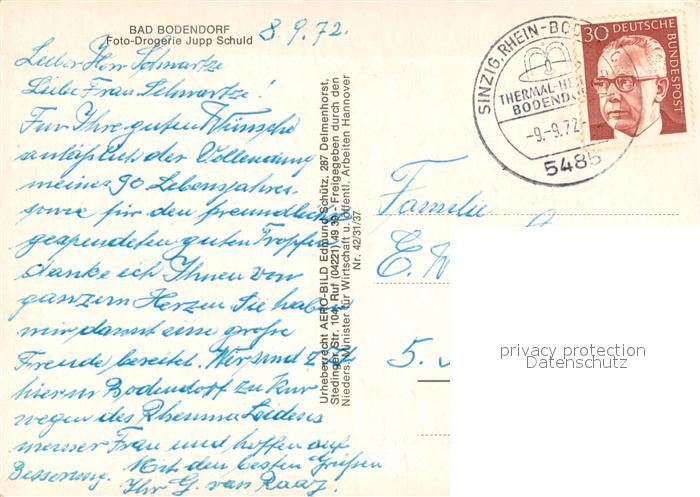 BAD BODENDORF
Foto-Drogerie Jupp Schuld
8.9.72.
Lieber Herr Schwartze
Liebe Frau Schwartze!
Für Ihre guten Wünsche
anläßlich der Vollendung
meines 90 Lebensjahres
sowie für den freundlichst
gespendeten guten Tropfen
danke ich Ihnen von
ganzem Herzen Sie haben
mir damit eine große
Freude bereitet. Wir sind z.Zt
hier in Bodendorf zu Kur
wegen des Rheuma Leidens
meiner Frau und hoffen auf
Besserung. Mit den besten Grüßen
Ihr G. van Raaz.
Urheberrecht AERO-BILD Edmund Schütz, 287 Delmenhorst,
Stedinger Str. 104, Ruf (04221) 49 39 - Freigegeben durch den
Nieders. Minister für Wirtschaft u. öffentl. Arbeiten Hannover
Nr. 42/31/37
SINZIG, RHEIN-BO
THERMAL-HE
BODENDO
-9.-9.72
5485
30 DEUTSCHE
BUNDESPOST
Familie
E.
5.
privacy protection
Datenschutz